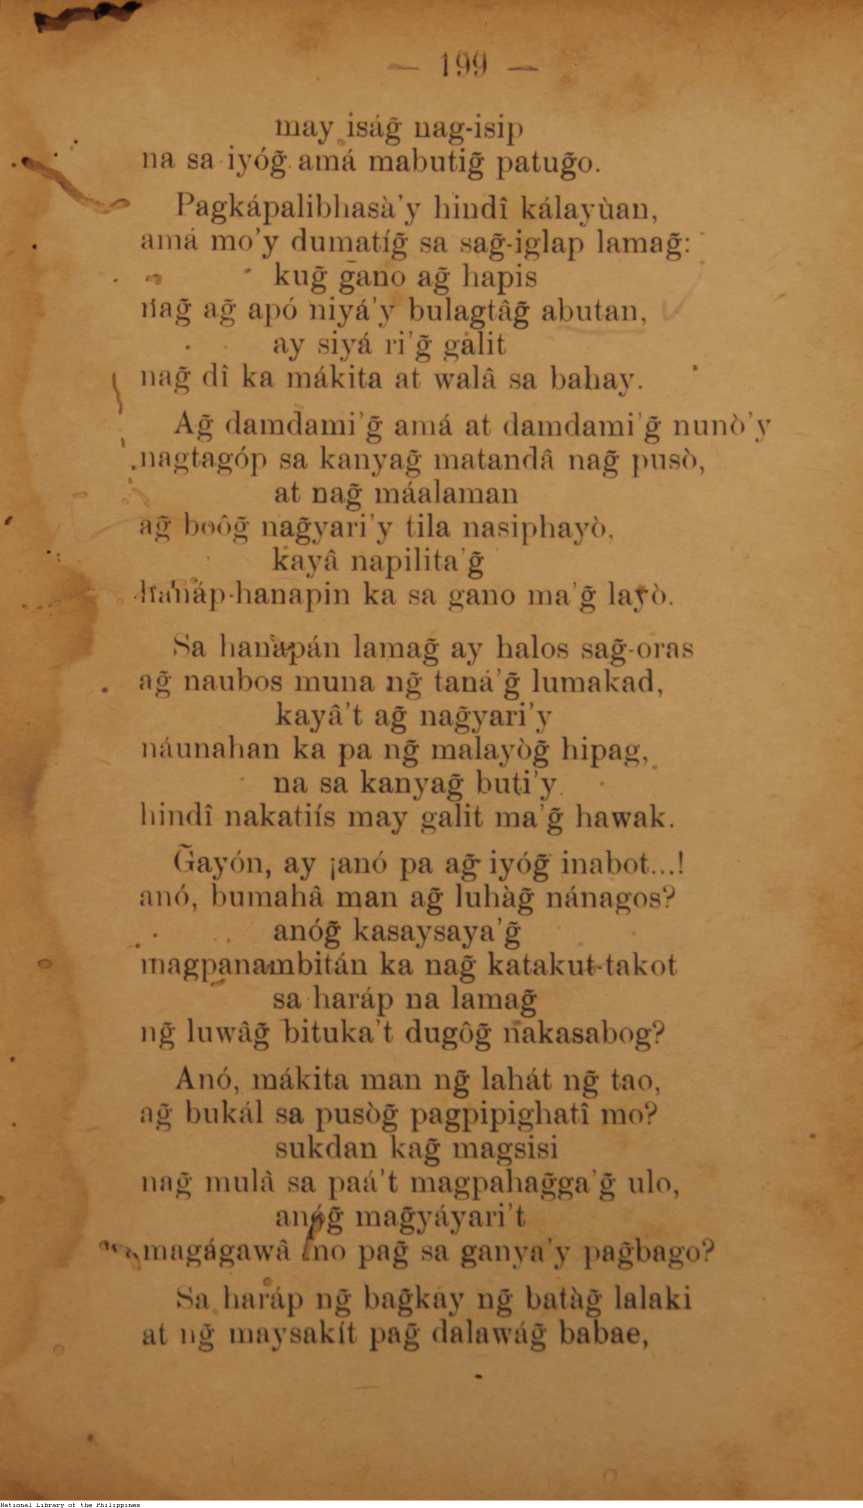 — 199 —
may iság̃ nag-isip
na sa iyóg̃ amá mabutig̃ patug̃o.
Pagkápalibhasà'y hindî kálayùan,
amá mo'y dumatíg̃ sa sag̃-iglap lamag̃:
kug̃ g̃ano ag̃ hapis
nag̃ ag̃ apó niyá'y bulagtâg̃ abutan,
ay siyá ri'g̃ galit
nag̃ dî ka mákita at walâ sa bahay.
Ag̃ damdami'g̃ amá at damdami'g̃ nunò'y
nagtagóp sa kanyag̃ matandâ nag̃ pusò,
at nag̃ máalaman
ag̃ boôg̃ nag̃yari'y tila nasiphayò,
kayâ napilita'g̃
hanáp-hanapin ka sa gano ma'g̃ layò.
Sa hanapán lamag̃ ay halos sag̃-oras
ag̃ naubos muna ng̃ taná'g̃ lumakad,
kayâ't ag̃ nag̃yari'y
náunahan ka pa ng̃ malayòg̃ hipag,
na sa kanyag̃ buti'y
hindî nakatiís may galit ma'g̃ hawak.
G̃ayón, ay ¡anó pa ag̃ iyóg̃ inabot...!
anó, bumahâ man ag̃ luhàg̃ nánagos?
anóg̃ kasaysaya'g̃
magpanambitán ka nag̃ katakut-takot
sa haráp na lamag̃
ng̃ luwâg̃ bituka't dugôg̃ nakasabog?
Anó, mákita man ng̃ lahát ng̃ tao,
ag̃ bukál sa pusòg̃ pagpipighatî mo?
sukdan kag̃ magsisi
nag̃ mulâ sa paá't magpahag̃ga'g̃ ulo,
anóg̃ mag̃yáyari't
magágawâ mo pag̃ sa ganya'y pag̃bago?
Sa haráp ng̃ bag̃kay ng̃ batàg̃ lalaki
at ng̃ maysakít pag̃ dalawág̃ babae,
National Library of the Philippines